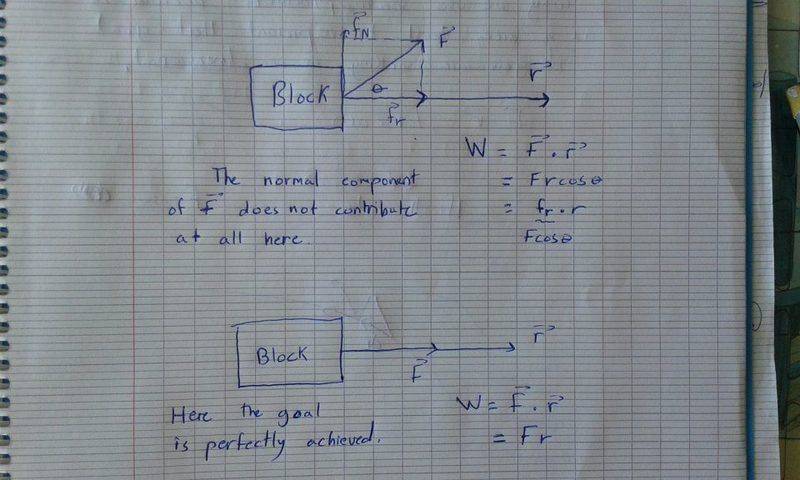 f⃗N
F⃗
Block
θ
r⃗
f⃗r
W = F⃗ . r⃗
= F r cos θ
= fr . r
F cos θ
The normal component
of F⃗ does not contribute
at all here.
Block
F⃗
r⃗
Here the goal
is perfectly achieved.
W = F⃗ . r⃗
= Fr